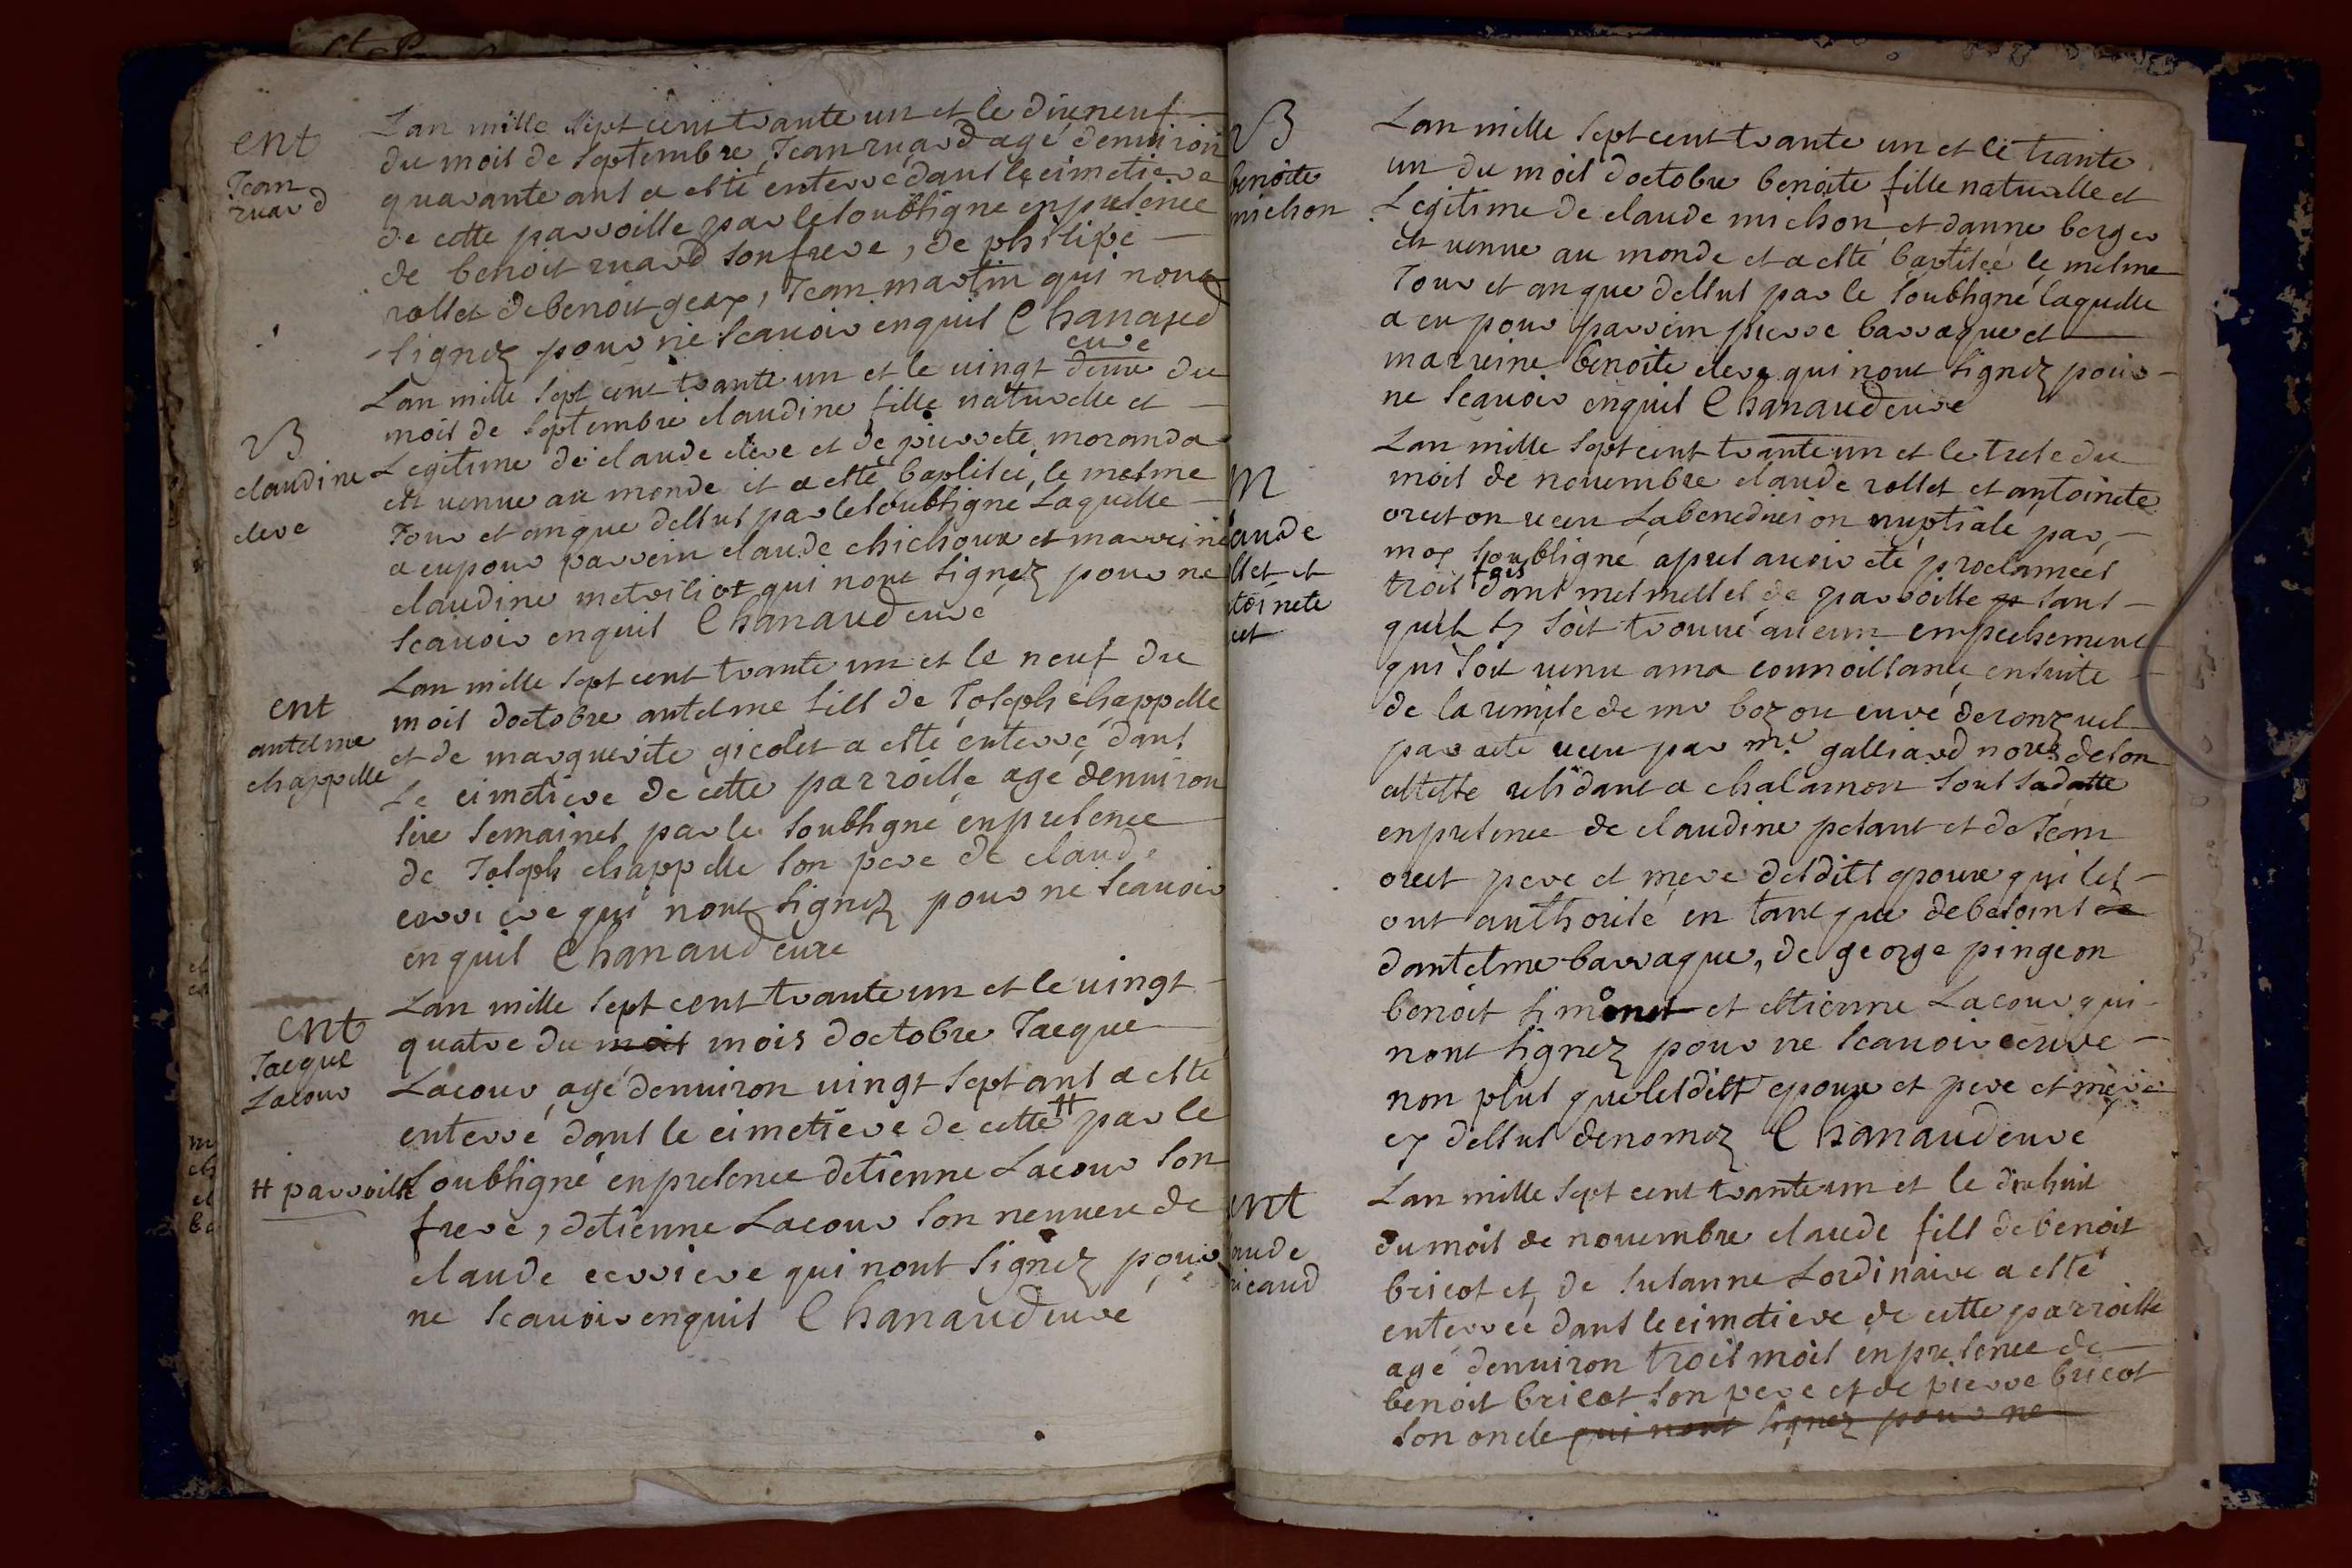 ent
Jean
ruard
Lan mille sept cent trante un et le dixneuf
du mois de septembre Jean ruard agé denuiron
quarante ans a esté enterré dans le cimetiere
de cette parroisse par le soubsigné en presence
de benoit ruard son frere, de philipe
rollet de benoit geay, Jean martin qui nont
signez pour ne scauoir enquis Chanaud
curé
B
claudine
clere
Lan mille sept cent trante un et le uingt deux du
mois de septembre claudine fille naturelle et
Legitime de claude clere et de pierrete moranda
est uenue au monde et a esté baptisée, le mesme
Jour et an que dessus par le soubsigné Laquelle
a eu pour parrein claude chichoux et marreine
claudine metriliot qui nont signez pour ne
scauoir enquis Chanaud curé
ent
antelme
chappelle
Lan mille sept cent trante un et le neuf du
mois doctobre antelme fils de Joseph chappelle
et de marguerite gicolet a esté enterré dans
Le cimetiere de cette parroisse agé denuiron
six semaines par le soubsigné en presence
de Joseph chappelle son pere de claude
corriere qui nont signez pour ne scauoir
enquis Chanaud curé
ent
Jacque
Lacour
Lan mille sept cent trante un et le uingt
quatre du mois mois doctobre Jacque
Lacour agé denuiron uingt sept ans a esté
enterré dans le cimetiere de cette # par le
# parroisse
soubsigné en presence detienne Lacour son
frere, detienne Lacour son neuueu de
claude ecorriere qui nont signez pour
ne scauoir enquis Chanaud curé
B
benoite
michon
Lan mille sept cent trante un et le trante
un du mois doctobre benoite fille naturelle et
Legitime de claude michon et danne berger
est uenue au monde et a esté baptisée le mesme
Jour et an que dessus par le soubsigné laquelle
a eu pour parrein pierre barraque et
marreine benoite clere qui nont signez pour
ne scauoir enquis Chanaud curé
M
aude
llet et
toinete
cet
Lan mille sept cent trante un et le trese du
mois de nouembre claude rollet et antoinete
orcet on receu La benediction nuptiale par
moy soubsigné apres auoir eté proclamées
trois fois dans mes messes de parroisse sans
quil sy soit trouué aucun empechement
qui soit uenu a ma connoissance ensuite
de la remise de mr bozon curé de ronzuel
par acte receu par me galliard nore de son
altesse residant a chalamon sous sa datte
en presence de claudine pesant et de Jean
orcet pere et mere desdits epoux qui les
ont authorisé en tant que de besoins de
dantelme barraque, de george pingeon
benoit simonet et estienne Lacour qui
nont signez pour ne scauoir ecrire
non plus que lesdits epoux et pere et mere
cy dessus denomez Chanaud curé
ent
aude
ricaud
Lan mille sept cent trante un et le dixhuit
du mois de nouembre claude fils de benoit
bricot et de susanne Lordinaire a esté
enterrée dans le cimetiere de cette parroisse
agé denuiron trois mois en presence de
benoit bricot son pere et de pierre bricot
son oncle qui nont signez pour ne